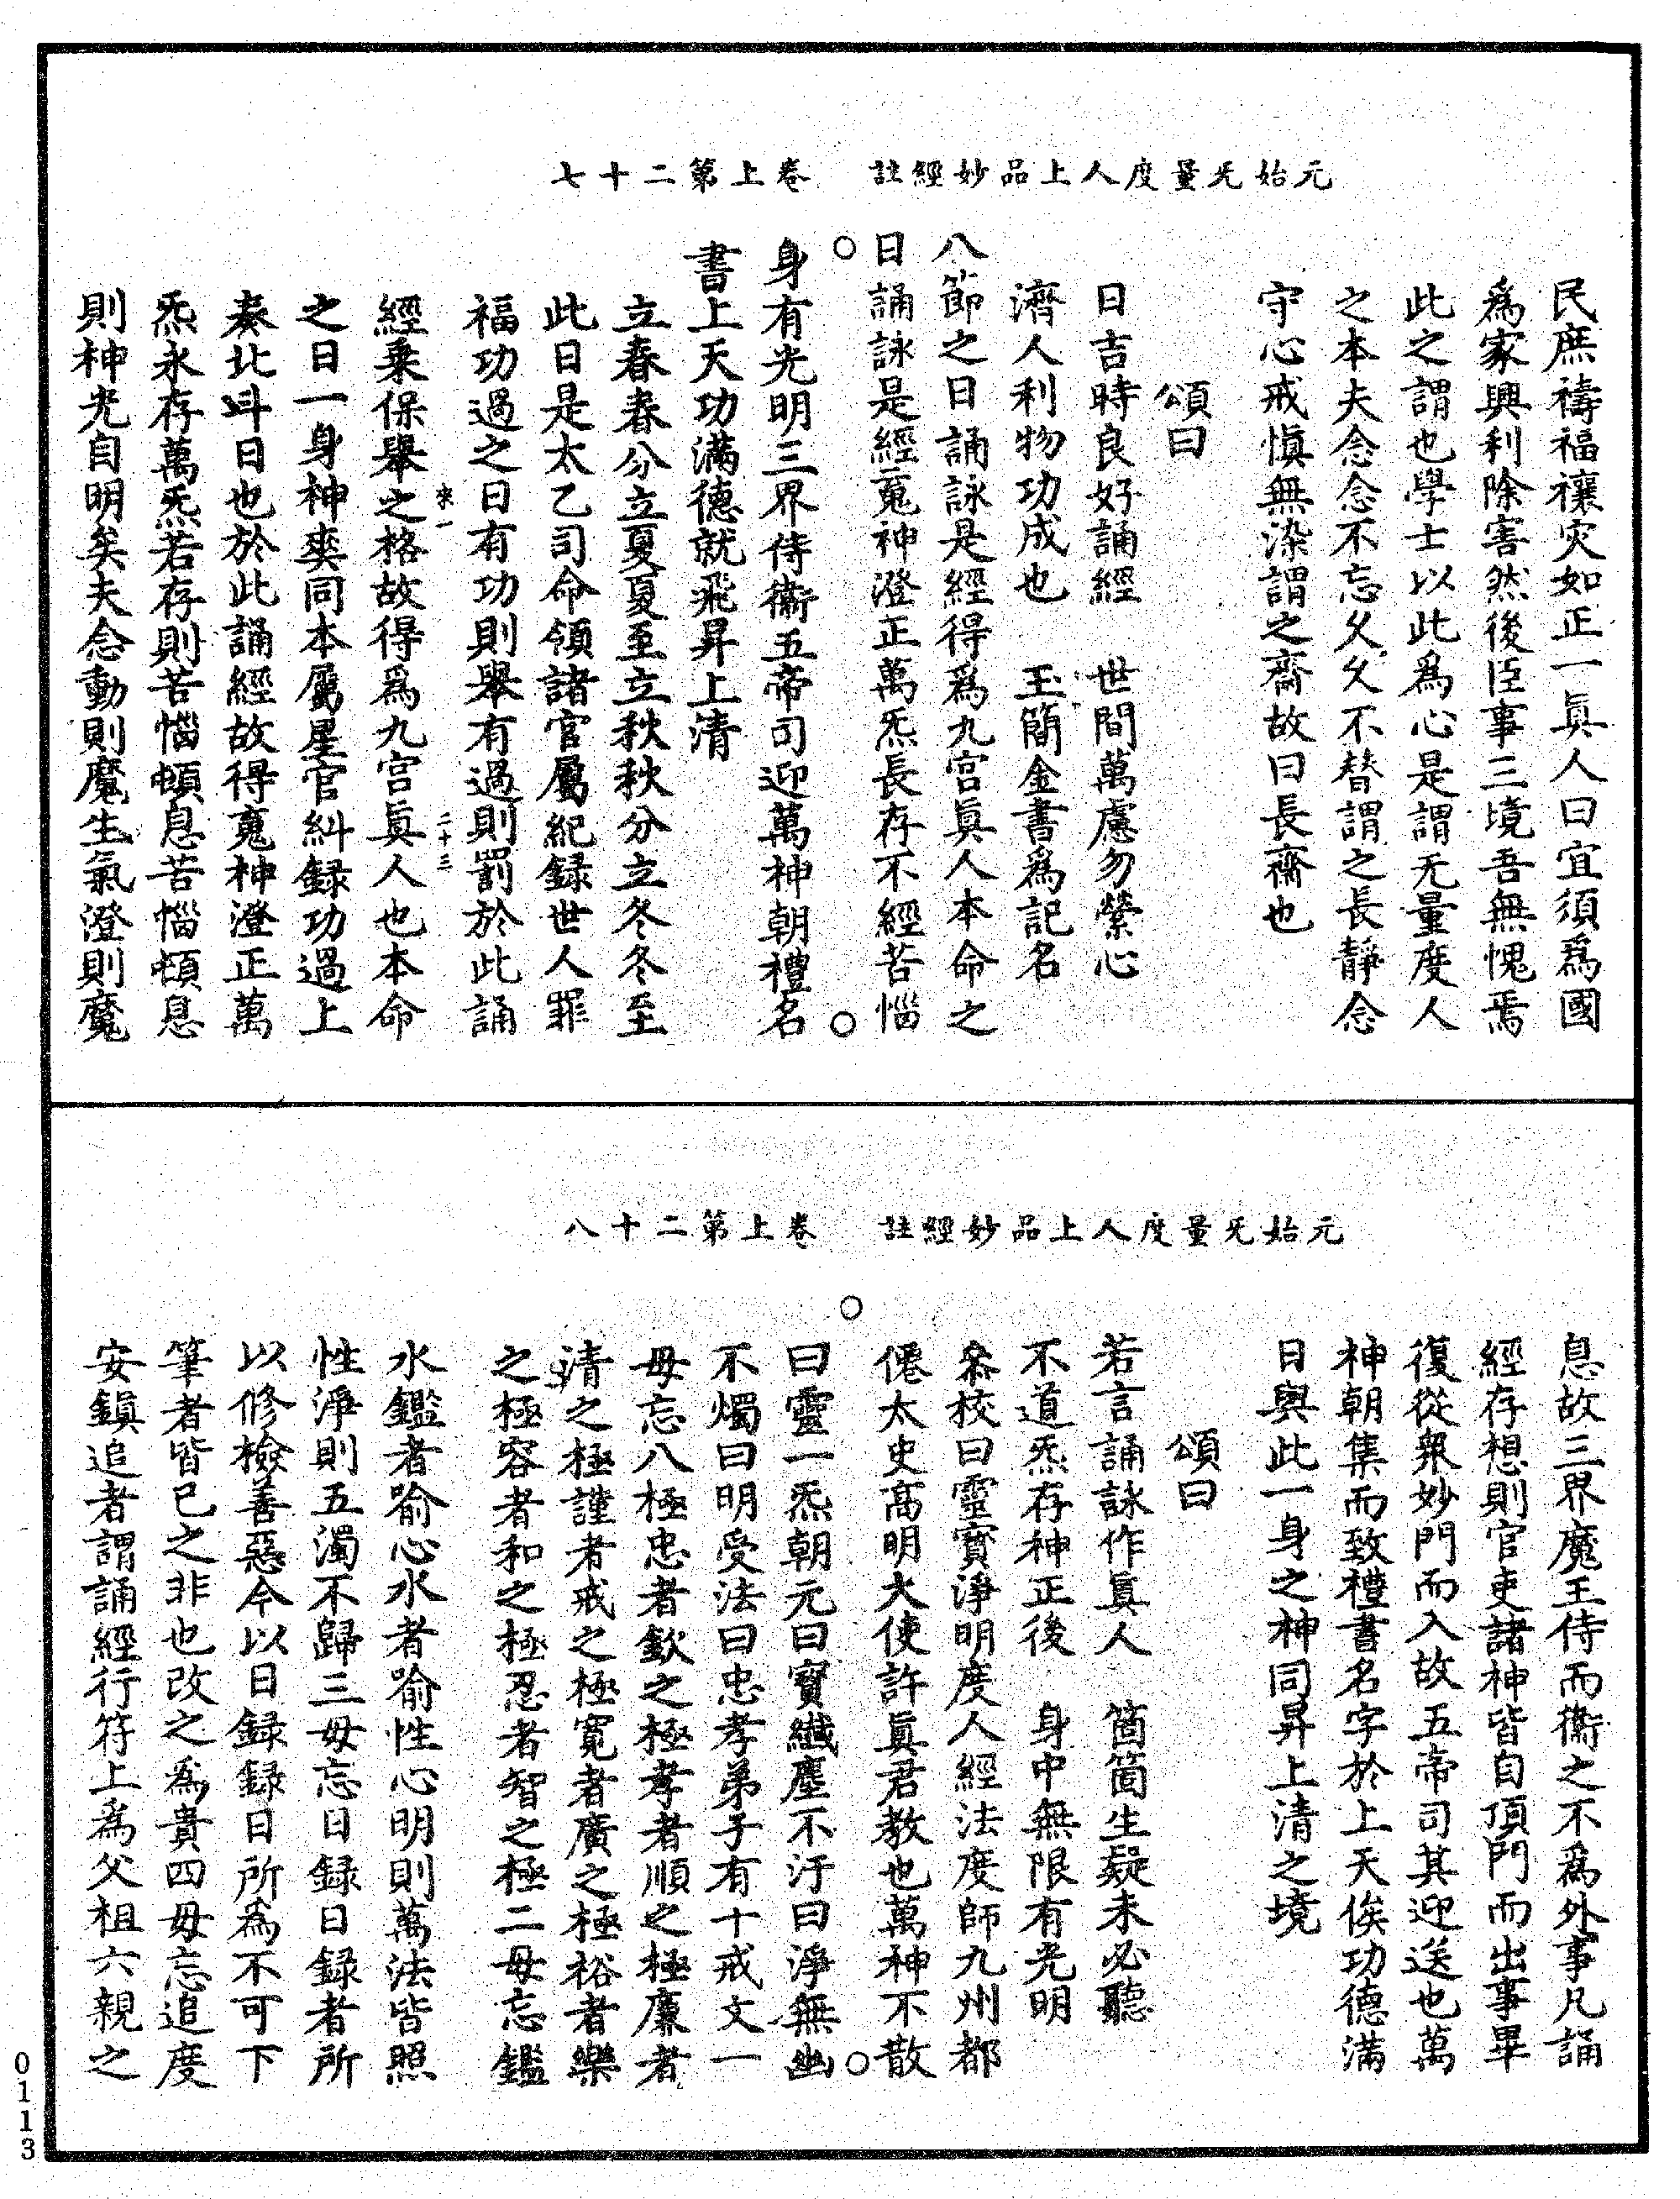 元始无量度人上品妙經註　卷上第二十七
民庶禱福禳灾如正一眞人曰宜須爲國
爲家興利除害然後臣事三境吾無愧焉
此之謂也學士以此爲心是謂无量度人
之本夫念念不忘久久不替謂之長靜念
守心戒愼無染謂之齋故曰長齋也
頌曰
日吉時良好誦經　世間萬慮勿縈心
濟人利物功成也　玉簡金書爲記名
八節之日誦詠是經得爲九宫眞人本命之
日誦詠是經䰟神澄正萬炁長存不經苦惱
○　○
身有光明三界侍衞五帝司迎萬神朝禮名
書上天功滿德就飛昇上清
立春春分立夏夏至立秋秋分立冬冬至
此日是太乙司命領諸官屬紀録世人罪
福功過之日有功則舉有過則罰於此誦
來一　二十三
經乗保舉之格故得爲九宫眞人也本命
之日一身神奕同本屬星官糾録功過上
奏北斗日也於此誦經故得䰟神澄正萬
炁永存萬炁若存則苦惱頓息苦惱頓息
則神光自明矣夫念動則魔生氣澄則魔
元始无量度人上品妙經註　卷上第二十八
息故三界魔王侍而衞之不爲外事凡誦
經存想則官吏諸神皆自頂門而出事畢
復從衆妙門而入故五帝司其迎送也萬
神朝集而致禮書名字於上天俟功德滿
日與此一身之神同昇上清之境
頌曰
若言誦詠作眞人　箇箇生疑未必聽
不道炁存神正後　身中無限有光明
叅校曰靈寳淨明度人經法度師九州都
僊太史高明大使許眞君教也萬神不散
○　○
曰靈一炁朝元曰寳纎塵不汙曰淨無幽
不燭曰明受法曰忠孝弟子有十戒文一
毋忘八極忠者欽之極孝者順之極廉者
清之極謹者戒之極寛者廣之極裕者樂
之極容者和之極忍者智之極二毋忘鑑
水鑑者喻心水者喻性心明則萬法皆照
性淨則五濁不歸三毋忘日録日録者所
以修檢善惡今以日録録日所爲不可下
筆者皆已之非也改之爲貴四毋忘追度
安鎮追者謂誦經行符上爲父祖六親之
0113